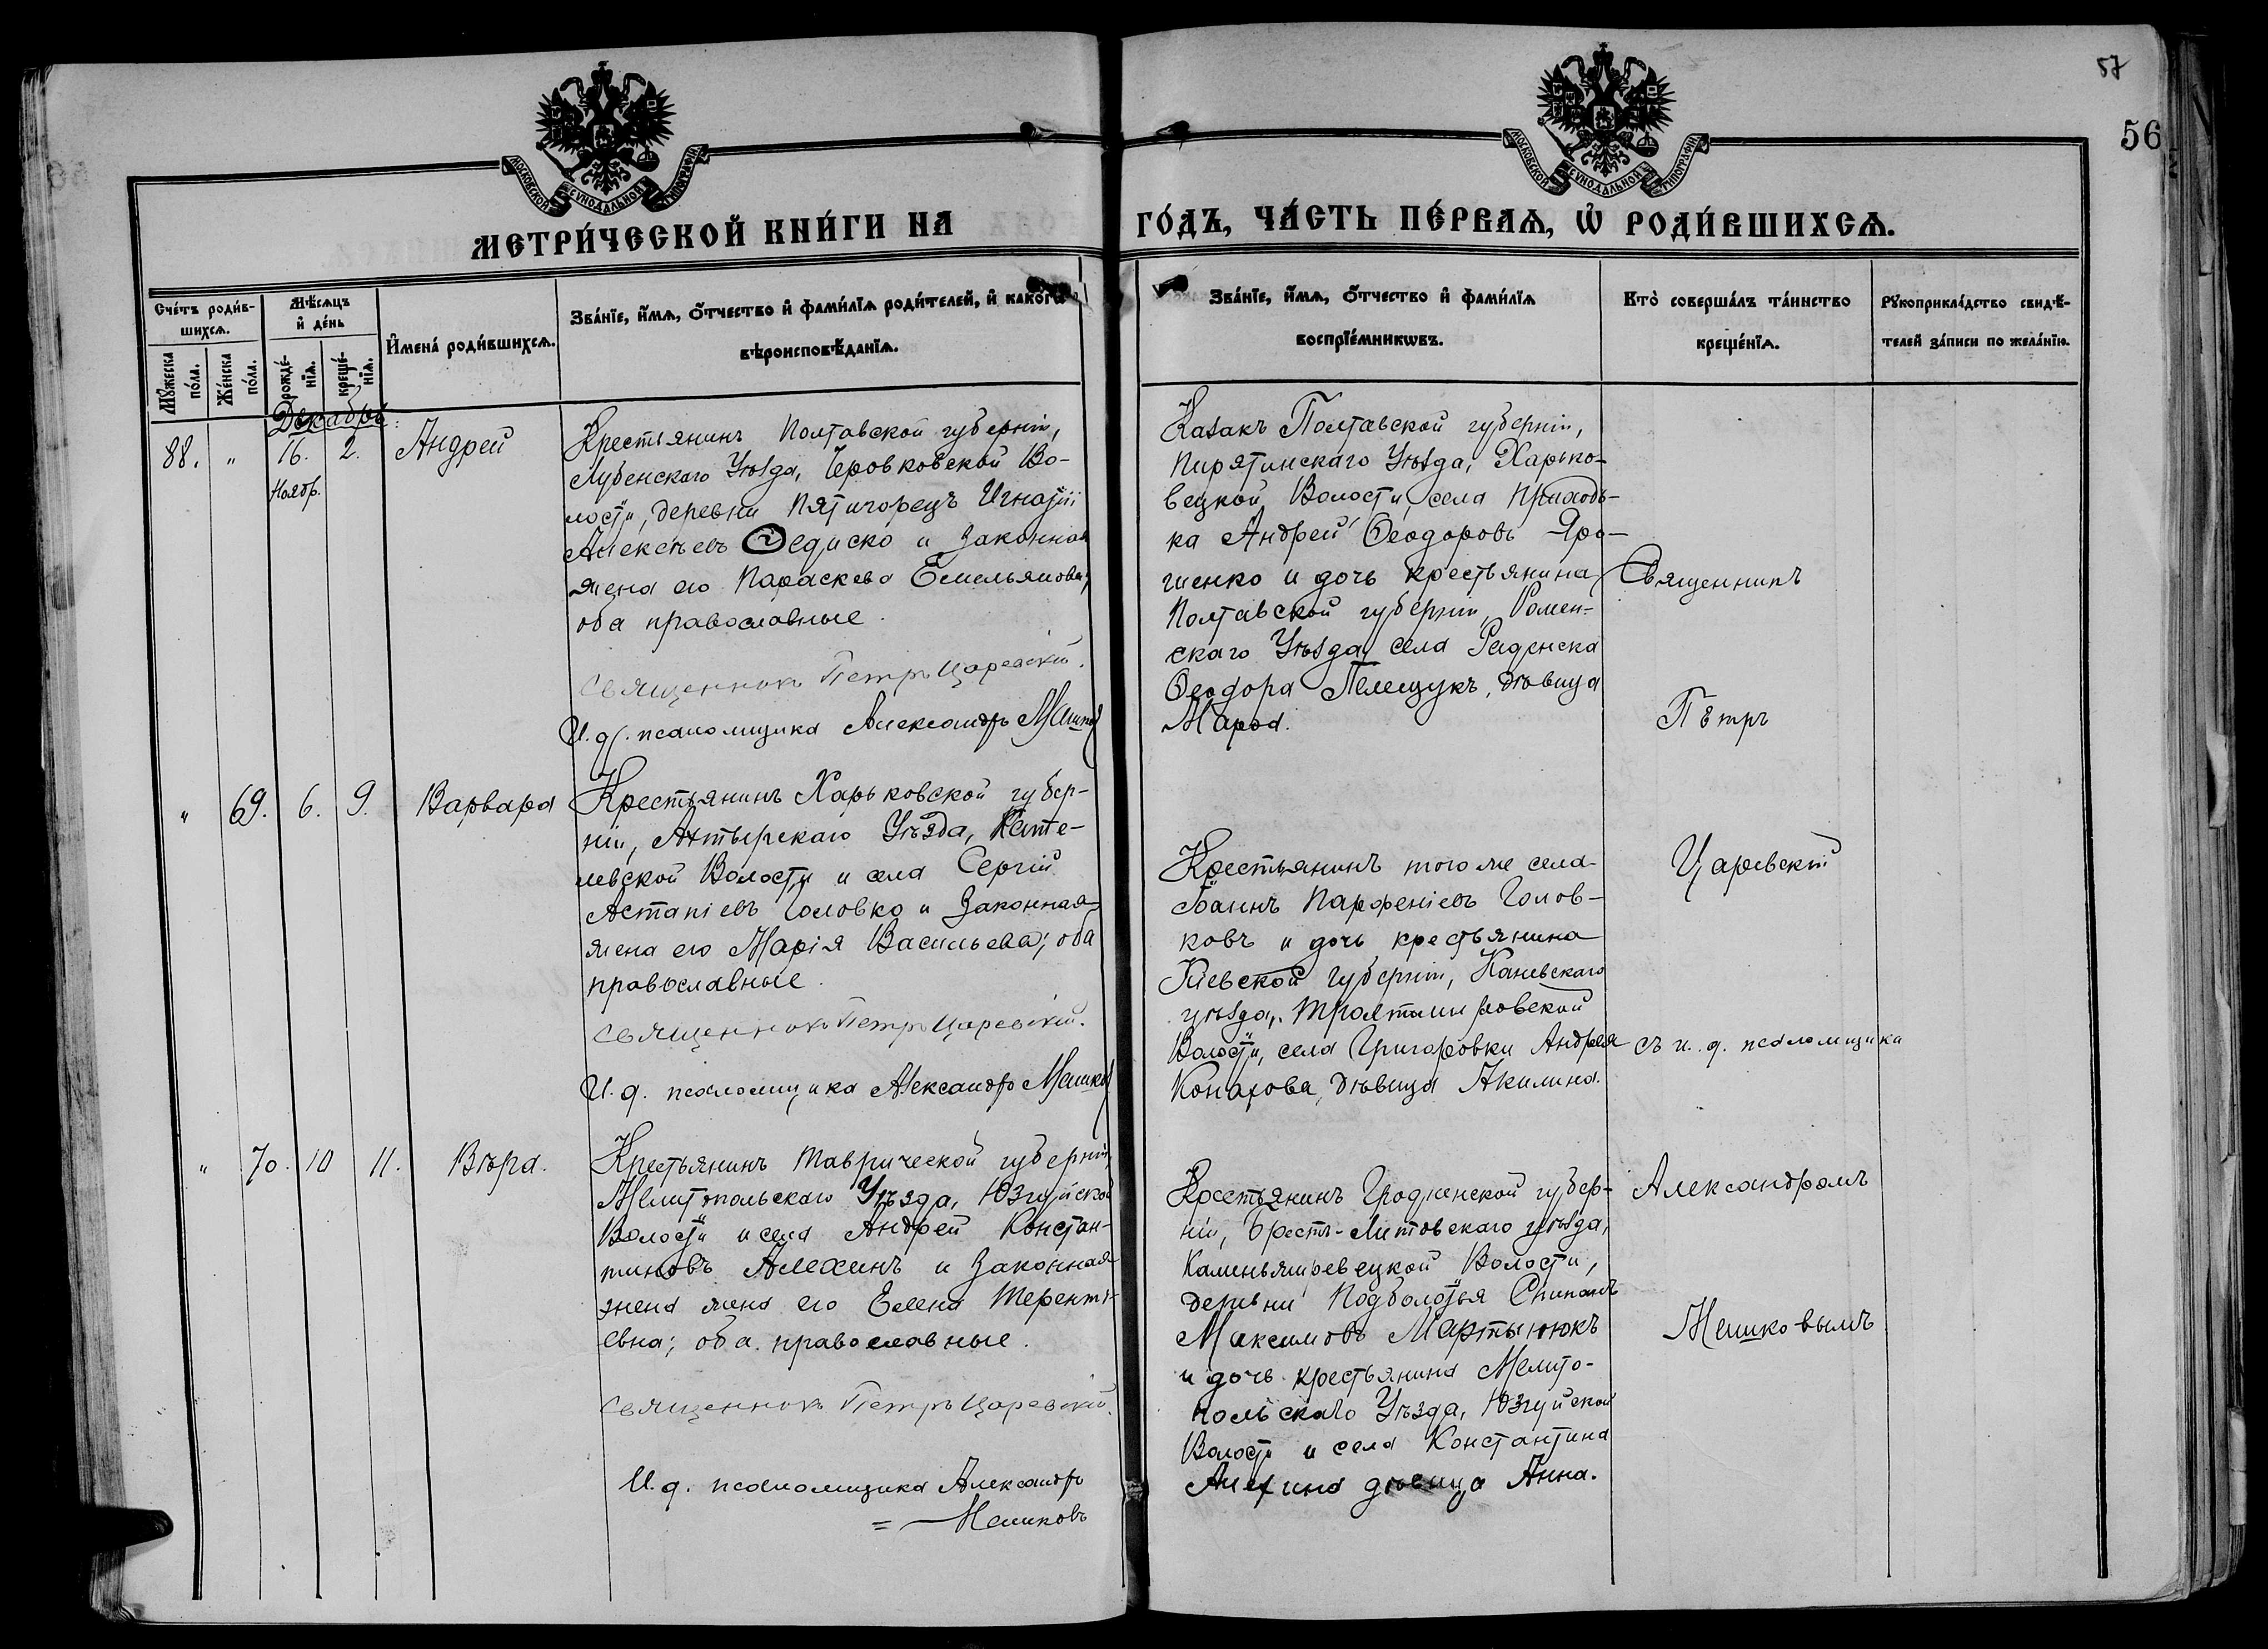 57
56
МОСКОВСКОЙ СѴНОДАЛЬНОЙ ТИПОГРАФІИ
МОСКОВСКОЙ СѴНОДАЛЬНОЙ ТИПОГРАФІИ
МЕТРИ́ЧЕСКОЙ КНИ́ГИ НА ГО́ДЪ, ЧА́СТЬ ПЕ́РВАѦ, Ѡ҆ РОДИ́ВШИХСѦ.
Сче́тъ роди́в-
шихсѧ.
Мꙋ́жеска
по́ла.
Же́нска
по́ла.
Мѣ́сѧцъ
и҆ де́нь
рожде́-
нїѧ.
креще́-
нїѧ.
И҆мена̀ роди́вшихсѧ.
Зва́нїе, и҆́мѧ, ѻ҆́тчество и҆ фами́лїѧ роди́телей, и҆ како́гѡ
вѣроисповѣ́данїѧ.
Зва́нїе, и҆́мѧ, ѻ҆́тчество и҆ фами́лїѧ
воспрїе́мникѡвъ.
Кто̀ соверша́лъ та́инство
креще́нїѧ.
Рꙋкоприкла́дство свидѣ́-
телей за́писи по жела́нїю.
Декабрь:
88. " 16. 2. Андрей
Ноябр.
Крестьянинъ Полтавской губерніи,
Лубенскаго Уѣзда, Черовковской Во-
лости, деревни Пятигорецъ Игнатій
Алексѣевъ Ѳедиско и законная
жена его Параскева Емельянова,
оба православные.
Священникъ Петръ Царевскій.
И. д. псаломщика Александръ Мешков
Казакъ Полтавской губерніи,
Пирятинскаго Уѣзда, Харько-
вецкой Волости, села Приходь-
ка Андрей Ѳеодоровъ Яро-
шенко и дочь крестьянина
Полтавской губерніи, Ромен-
скаго Уѣзда села
Ѳеодора Пелещукъ, дѣвица
Марѳа.
Священникъ
Пѣтръ
" 69. 6. 9. Варвара
Крестьянинъ Харьковской губер-
ніи, Ахтырскаго Уѣзда, Коте-
левской Волости и села Сергій
Астапіевъ Головко и законная
жена его Марія Васильева; оба
православные.
Священникъ Петръ Царевскій.
И. д. псаломщика Александръ Мешков
Крестьянинъ того же села
Іоаннъ Парѳеніевъ Голов-
ковъ и дочь крестьянина
Кіевской губерніи, Каневскаго
уѣзда, Трахтемировской
Волости, села Григоровки Андрея
Конарова, дѣвица Акилина.
Царевскій
съ и. д. псаломщика
" 70. 10 11. Вѣра.
Крестьянинъ Таврической губерніи,
Мелитопольскаго Уѣзда, Юзгуйской
Волости и села Андрей Констан-
тиновъ Алехинъ и законная
жена жена его Елена Теренті-
евна; оба православные.
Священникъ Петръ Царевскій.
И. д. псаломщика Александръ
= Мешковъ
Крестьянинъ Гродненской губер-
ніи, Брестъ-Литовскаго уѣзда,
Волости,
деревни Подболотья
Максимовъ Мартынюкъ
и дочь крестьянина Мелито-
польскаго Уѣзда, Юзгуйской
Волости и села Константина
Алехина дѣвица Анна.
Александромъ
Мешковымъ